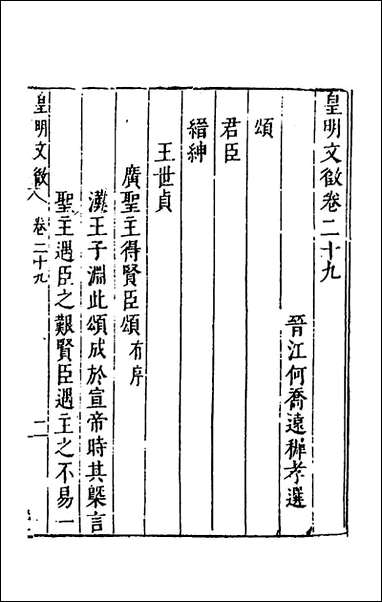 皇明文徵卷二十九
晉江何喬遠穉孝選
頌
君臣
縉紳
王世貞
廣聖主得賢臣頌有序
漢王子淵此頌成於宣帝時其槩言
聖主遇臣之艱賢臣遇主之不易一
皇明文徵 卷二十九 二